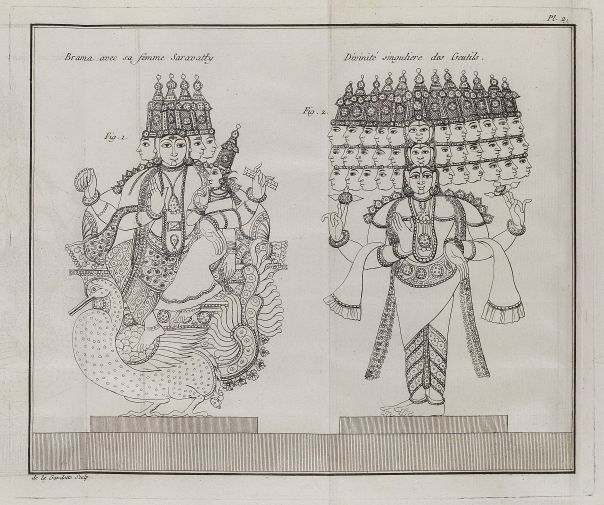 Pl. 2.
Brama avec sa femme Saravatty
Divinité singuliere des Gentils.
Fig. 1.
Fig. 2.
de la Gardette Sculp